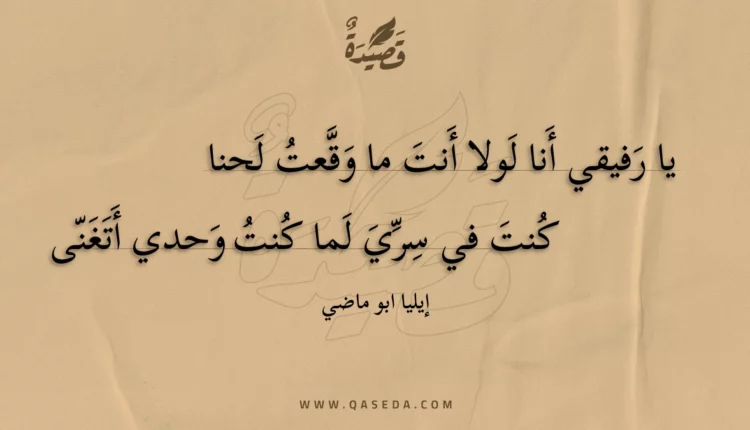 قَصِيدَةٌ
يا رَفيقي أَنا لَولا أَنتَ ما وَقَّعتُ لَحنا
كُنتَ في سِرِّيَ لَما كُنتُ وَحدي أَتَغَنّى
إيليا ابو ماضي
WWW.QASEDA.COM